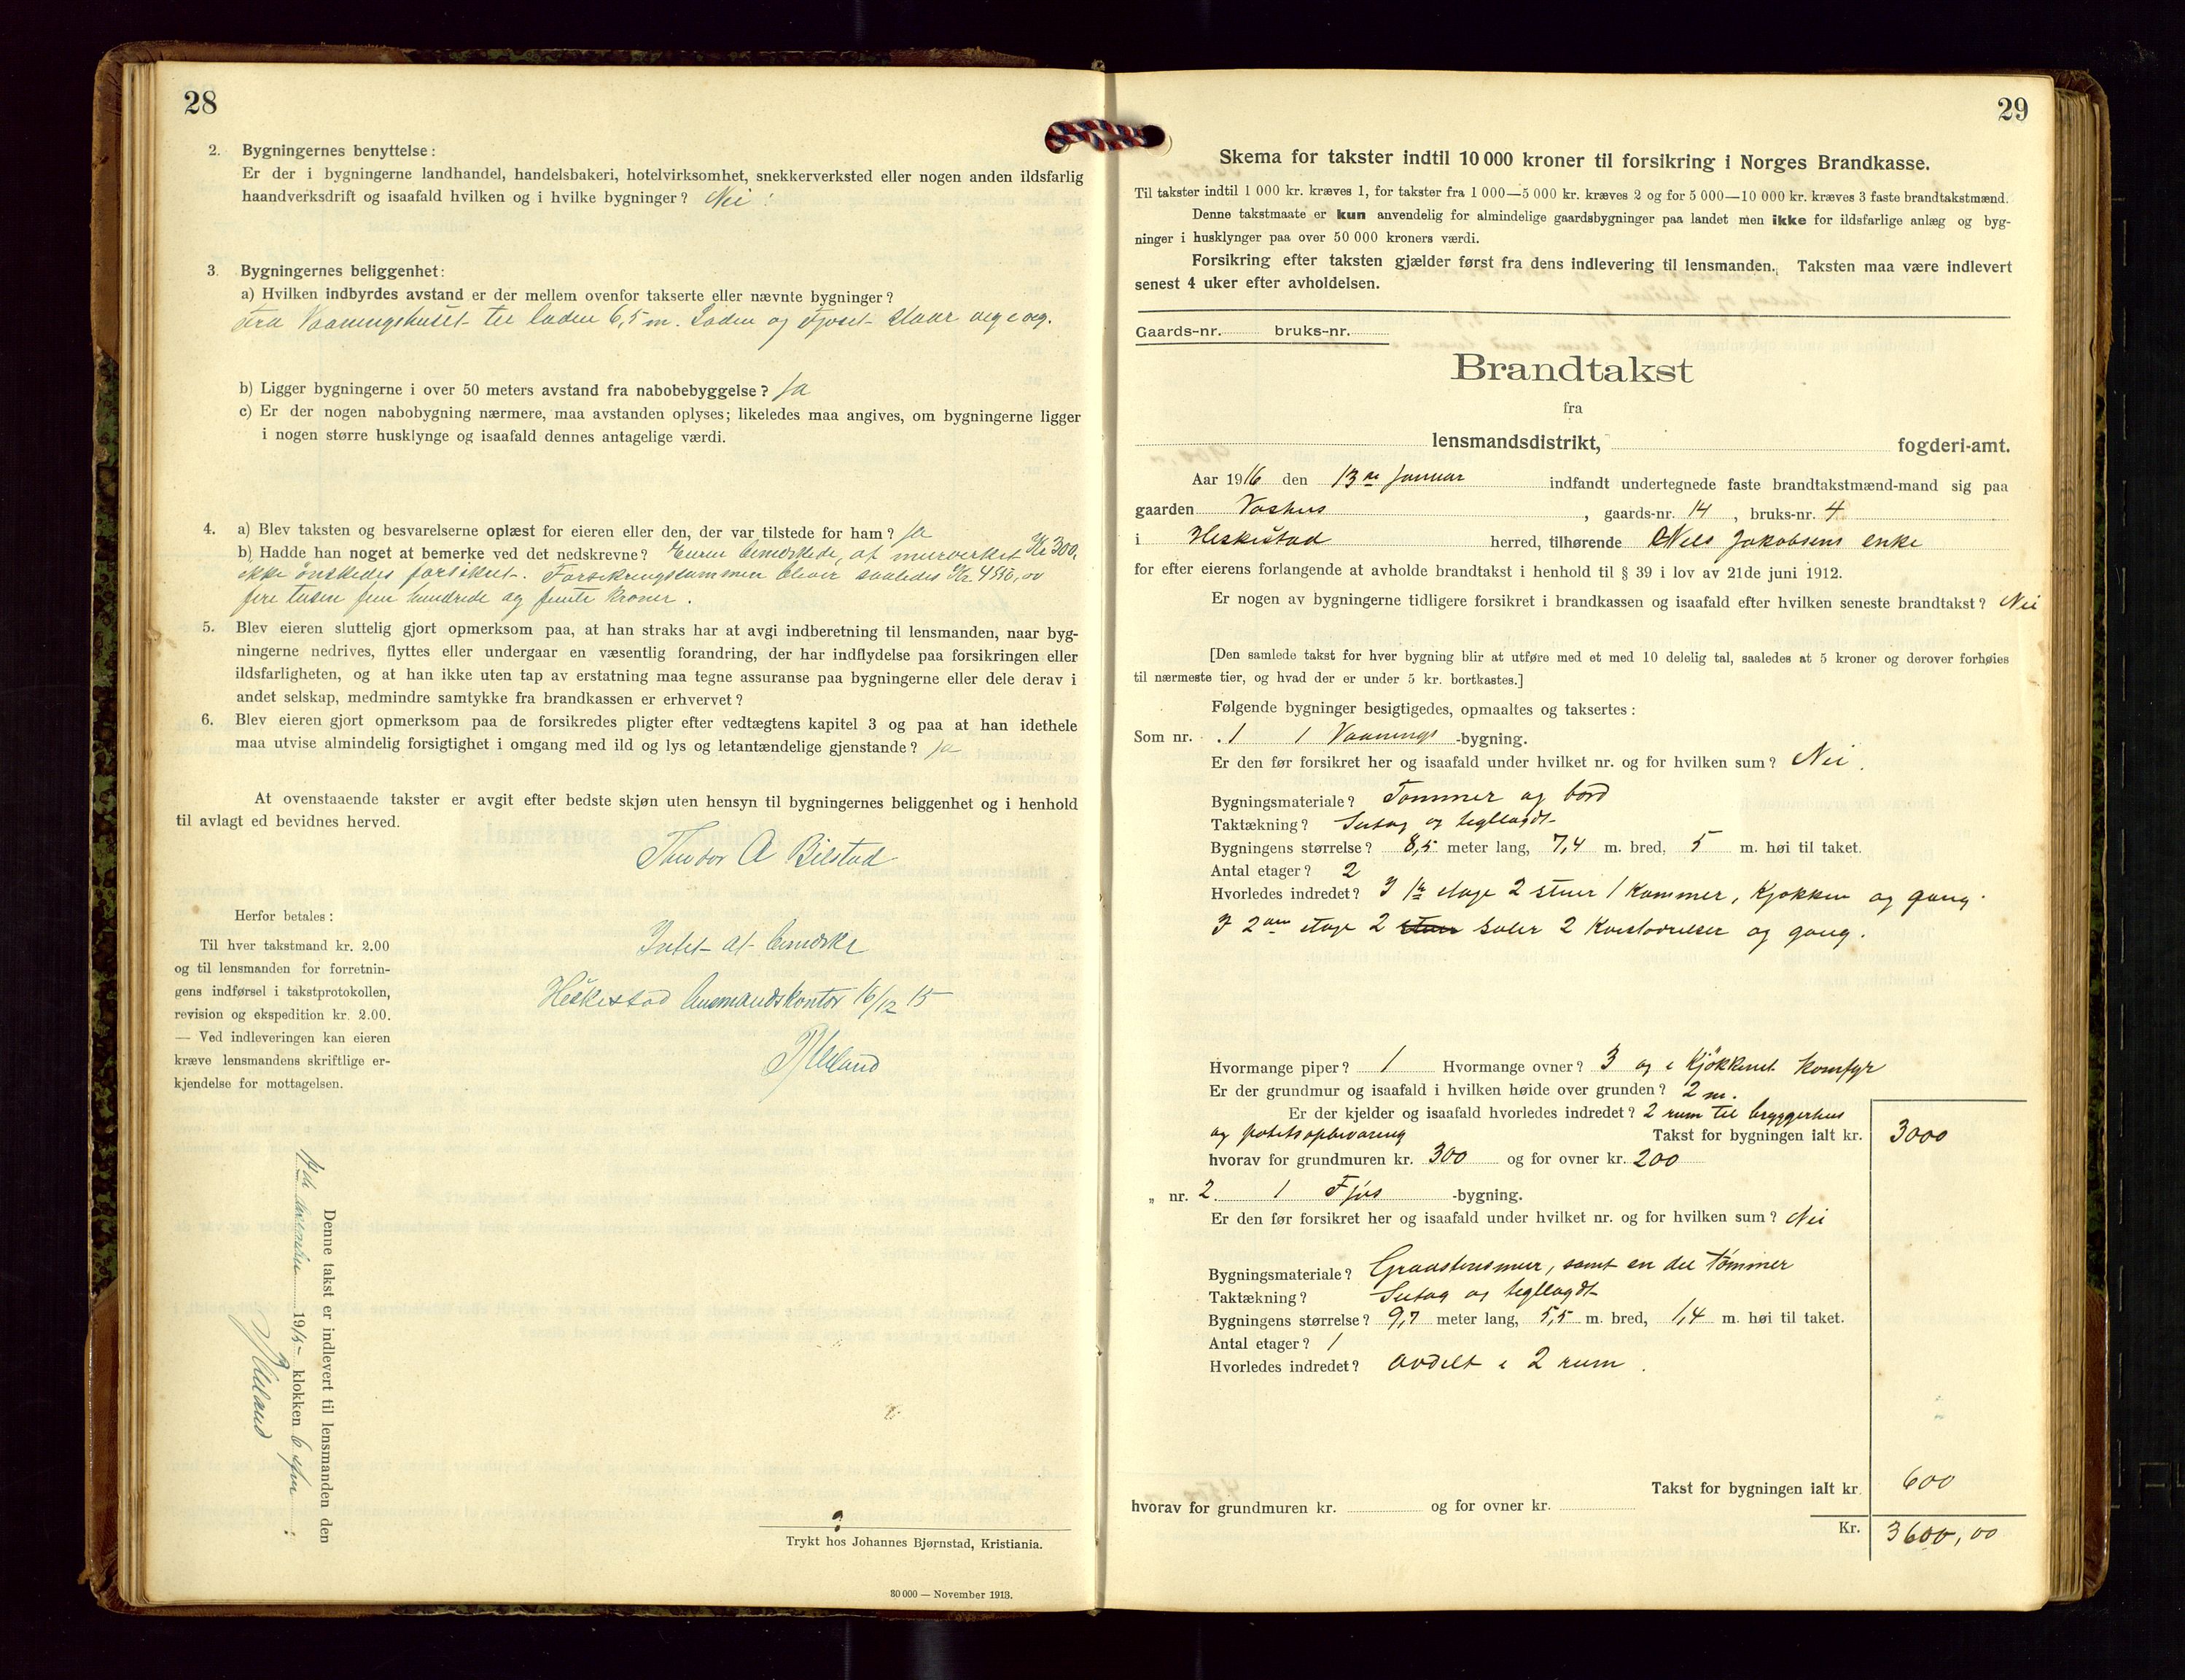 28
2. Bygningernes benyttelse:
Er der i bygningerne landhandel, handelsbakeri, hotelvirksomhet, snekkerverksted eller nogen anden ildsfarlig
haandverksdrift og isaafald hvilken og i hvilke bygninger? Nei
3. Bygningernes beliggenhet:
a) Hvilken indbyrdes avstand er der mellem ovenfor takserte eller nævnte bygninger?
Fra Vaaningshuset til laden 6,5 m. Laden og Fjøset staar veg i veg.
b) Ligger bygningerne i over 50 meters avstand fra nabobebyggelse? Ja
c) Er der nogen nabobygning nærmere, maa avstanden oplyses; likeledes maa angives, om bygningerne ligger
i nogen større husklynge og isaafald dennes antagelige værdi.
4. a) Blev taksten og besvarelserne oplæst for eieren eller den, der var tilstede for ham? Ja
b) Hadde han noget at bemerke ved det nedskrevne? Eieren bemerkede, at murverket Kr 300,
ikke ønskedes forsikret. Forsikringssummen bliver saaledes Kr 4550,00
fire tusen fem hundrede og femti kroner.
5. Blev eieren sluttelig gjort opmerksom paa, at han straks har at avgi indberetning til lensmanden, naar byg-
ningerne nedrives, flyttes eller undergaar en væsentlig forandring, der har indflydelse paa forsikringen eller
ildsfarligheten, og at han ikke uten tap av erstatning maa tegne assuranse paa bygningerne eller dele derav i
andet selskap, medmindre samtykke fra brandkassen er erhvervet?
6. Blev eieren gjort opmerksom paa de forsikredes pligter efter vedtægtens kapitel 3 og paa at han idethele
maa utvise almindelig forsigtighet i omgang med ild og lys og letantændelige gjenstande? Ja
At ovenstaaende takster er avgit efter bedste skjøn uten hensyn til bygningernes beliggenhet og i henhold
til avlagt ed bevidnes herved.
Theodor A Bilstad
Herfor betales:
Til hver takstmand kr. 2.00
og til lensmanden for forretnin-
gens indførsel i takstprotokollen,
revision og ekspedition kr. 2.00.
— Ved indleveringen kan eieren
kræve lensmandens skriftlige er-
kjendelse for mottagelsen.
Intet at bemerke
Heskestad lensmandskontor 16/12 15
Denne takst er indlevert til lensmanden den
1915 klokken 6 efm.
Trykt hos Johannes Bjørnstad, Kristiania.
30 000 — November 1913.
29
Skema for takster indtil 10 000 kroner til forsikring i Norges Brandkasse.
Til takster indtil 1 000 kr. kræves 1, for takster fra 1 000—5 000 kr. kræves 2 og for 5 000—10 000 kr. kræves 3 faste brandtakstmænd.
Denne takstmaate er kun anvendelig for almindelige gaardsbygninger paa landet men ikke for ildsfarlige anlæg og byg-
ninger i husklynger paa over 50 000 kroners værdi.
Forsikring efter taksten gjælder først fra dens indlevering til lensmanden. Taksten maa være indlevert
senest 4 uker efter avholdelsen.
Gaards-nr. bruks-nr.
Brandtakst
fra
lensmandsdistrikt, fogderi-amt.
Aar 1916 den 13de Januar indfandt undertegnede faste brandtakstmænd-mand sig paa
gaarden Vashus, gaards-nr. 14, bruks-nr. 4
i Heskestad herred, tilhørende Nels Jakobsens enke
for efter eierens forlangende at avholde brandtakst i henhold til § 39 i lov av 21de juni 1912.
Er nogen av bygningerne tidligere forsikret i brandkassen og isaafald efter hvilken seneste brandtakst? Nei
[Den samlede takst for hver bygning blir at utføre med et med 10 delelig tal, saaledes at 5 kroner og derover forhøies
til nærmeste tier, og hvad der er under 5 kr. bortkastes.]
Følgende bygninger besigtigedes, opmaaltes og taksertes:
Som nr. 1 1 Vaanings-bygning.
Er den før forsikret her og isaafald under hvilket nr. og for hvilken sum? Nei.
Bygningsmateriale? Tømmer og bord
Taktækning? Sutag og tegllagdt
Bygningens størrelse? 8,5 meter lang, 7,4 m. bred, 5 m. høi til taket.
Antal etager? 2
Hvorledes indredet? I 1ste etage 2 stuer 1 kammer, Kjøkken og gang.
I 2den etage 2 stuer saler 2 Kvistværelser og gang.
Hvormange piper? 1 Hvormange ovner? 3 og i Kjøkkenet komfyr
Er der grundmur og isaafald i hvilken høide over grunden? 2 m.
Er der kjelder og isaafald hvorledes indredet? 2 rum til bryggerhus
og potetopbevaring Takst for bygningen ialt kr. 3000
hvorav for grundmuren kr. 300 og for ovner kr. 200
„ nr. 2 1 Fjøs-bygning.
Er den før forsikret her og isaafald under hvilket nr. og for hvilken sum? Nei
Bygningsmateriale? Graastensmur, samt en del tømmer
Taktækning? Sutag og tegllagdt
Bygningens størrelse? 9,7 meter lang, 5,5 m. bred, 1,4 m. høi til taket.
Antal etager? 1
Hvorledes indredet? avdelt i 2 rum.
Takst for bygningen ialt kr. 600
hvorav for grundmuren kr. og for ovner kr.
Kr. 3600,00